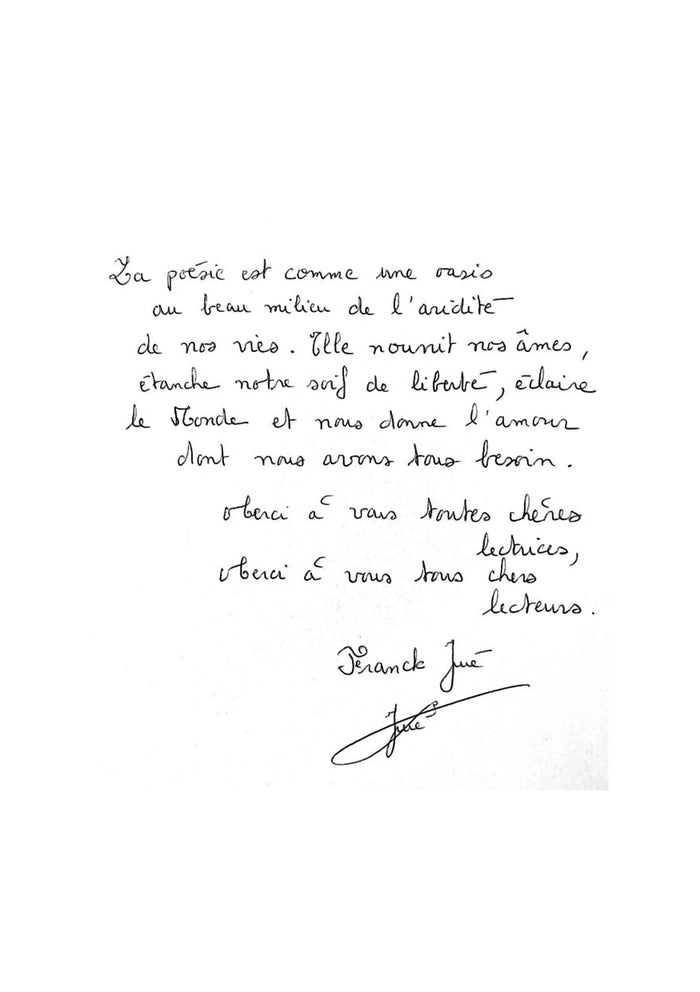 La poésie est comme une oasis
au beau milieu de l'aridité
de nos vies. Elle nourrit nos âmes,
étanche notre soif de liberté, éclaire
le Monde et nous donne l'amour
dont nous avons tous besoin.
Merci à vous toutes chères
lectrices,
Merci à vous tous chers
lecteurs.
Franck Jué
Jué